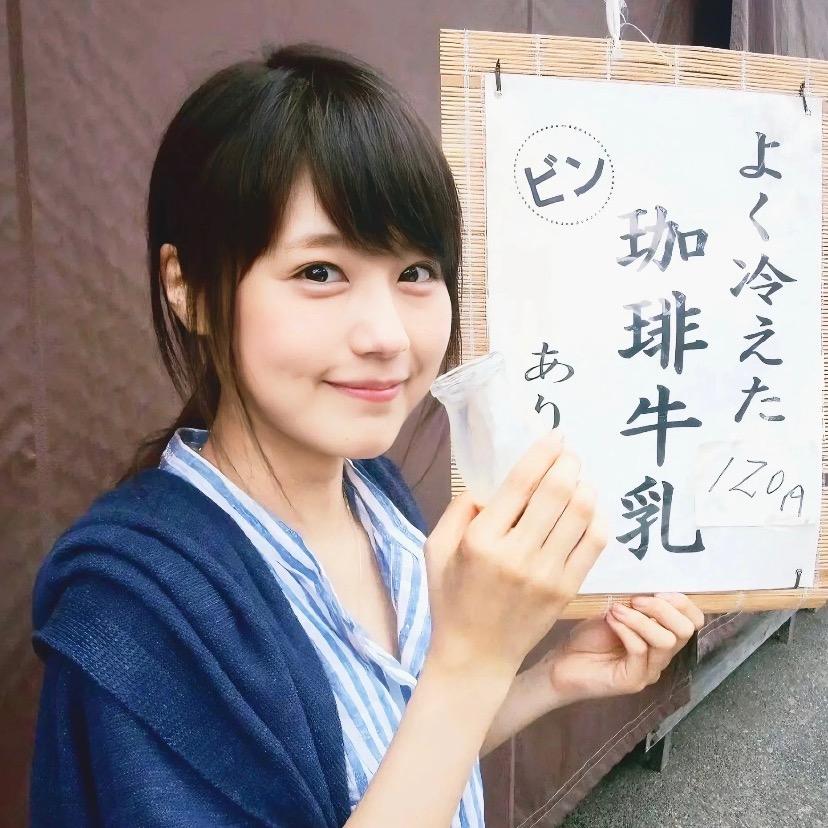 よく冷えた
珈琲牛乳
120円
ビン
あり